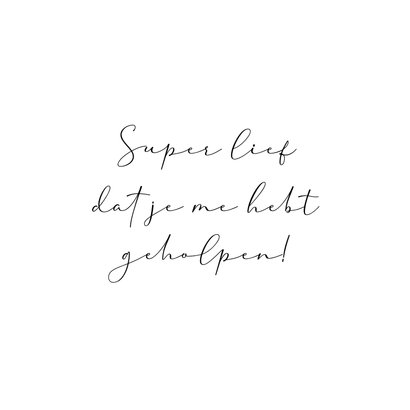 Super lief
dat je me hebt
geholpen!